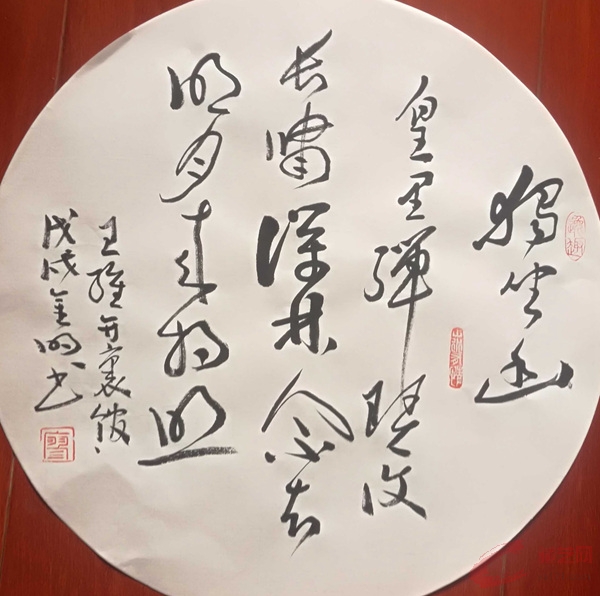 獨坐幽
篁里彈琴復
长嘯深林人不知
明月来相照
王維竹裏館
戊戌金明书